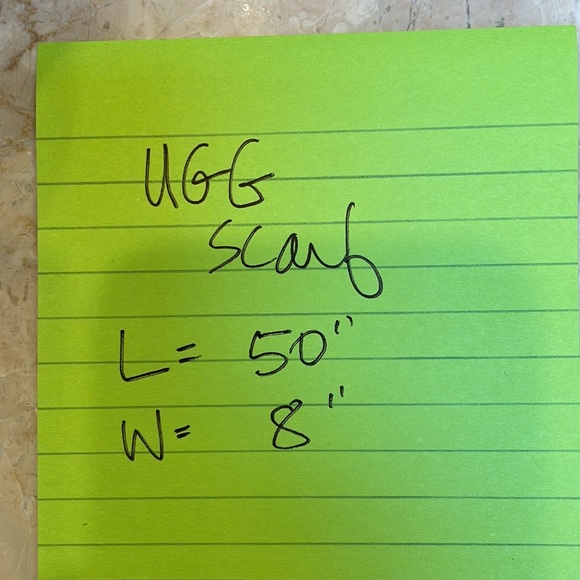 UGG
scarf
L= 50"
W= 8"